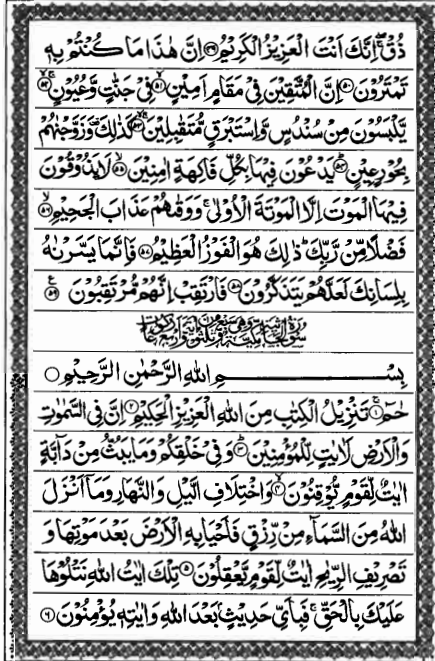 ذُقْ ۚ اِنَّكَ اَنْتَ الْعَزِيْزُ الْكَرِيْمُ ﴿۴۹﴾ اِنَّ هٰذَا مَا كُنْتُمْ بِهٖ
تَمْتَرُوْنَ ﴿۵۰﴾ اِنَّ الْمُتَّقِيْنَ فِيْ مَقَامٍ اَمِيْنٍ ﴿۵۱﴾ فِيْ جَنّٰتٍ وَّعُيُوْنٍ ﴿۵۲﴾
يَّلْبَسُوْنَ مِنْ سُنْدُسٍ وَّاِسْتَبْرَقٍ مُّتَقٰبِلِيْنَ ﴿۵۳﴾ كَذٰلِكَ ۫ وَزَوَّجْنٰهُمْ
بِحُوْرٍ عِيْنٍ ﴿۵۴﴾ يَدْعُوْنَ فِيْهَا بِكُلِّ فَاكِهَةٍ اٰمِنِيْنَ ﴿۵۵﴾ لَا يَذُوْقُوْنَ
فِيْهَا الْمَوْتَ اِلَّا الْمَوْتَةَ الْاُوْلٰى ۚ وَوَقٰىهُمْ عَذَابَ الْجَحِيْمِ ﴿۵۶﴾
فَضْلًا مِّنْ رَّبِّكَ ؕ ذٰلِكَ هُوَ الْفَوْزُ الْعَظِيْمُ ﴿۵۷﴾ فَاِنَّمَا يَسَّرْنٰهُ
بِلِسَانِكَ لَعَلَّهُمْ يَتَذَكَّرُوْنَ ﴿۵۸﴾ فَارْتَقِبْ اِنَّهُمْ مُّرْتَقِبُوْنَ ﴿۵۹﴾
بِسْمِ اللّٰهِ الرَّحْمٰنِ الرَّحِيْمِ
حٰمٓ ﴿۱﴾ تَنْزِيْلُ الْكِتٰبِ مِنَ اللّٰهِ الْعَزِيْزِ الْحَكِيْمِ ﴿۲﴾ اِنَّ فِي السَّمٰوٰتِ
وَالْاَرْضِ لَاٰيٰتٍ لِّلْمُؤْمِنِيْنَ ﴿۳﴾ وَفِيْ خَلْقِكُمْ وَمَا يَبُثُّ مِنْ دَآبَّةٍ
اٰيٰتٌ لِّقَوْمٍ يُّوْقِنُوْنَ ﴿۴﴾ وَاخْتِلَافِ الَّيْلِ وَالنَّهَارِ وَمَاۤ اَنْزَلَ
اللّٰهُ مِنَ السَّمَآءِ مِنْ رِّزْقٍ فَاَحْيَا بِهِ الْاَرْضَ بَعْدَ مَوْتِهَا وَ
تَصْرِيْفِ الرِّيٰحِ اٰيٰتٌ لِّقَوْمٍ يَّعْقِلُوْنَ ﴿۵﴾ تِلْكَ اٰيٰتُ اللّٰهِ نَتْلُوْهَا
عَلَيْكَ بِالْحَقِّ ۚ فَبِاَيِّ حَدِيْثٍۭ بَعْدَ اللّٰهِ وَاٰيٰتِهٖ يُؤْمِنُوْنَ ﴿۶﴾